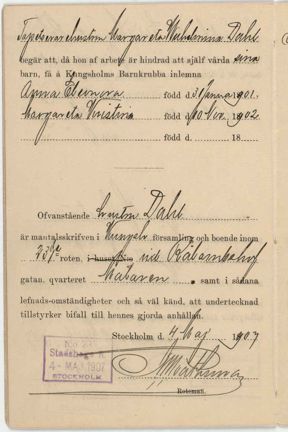 Margareta Wilhelmina Dahl
begär att, då hon af arbete är hindrad att själf vårda sina
barn, få å Kungsholms Barnkrubba inlemna
Anna Eleonora född d. 31 Janua 1901.
Margareta Kristina född d. 10 Nov. 1902
född d. 18
Ofvanstående Dahl
är mantalsskrifven i Kungsh. församling och boende inom
23 roten, i huset N:o
gatan, qvarteret Mälaren samt i sådana
lefnads-omständigheter och så väl känd, att undertecknad
tillstyrker bifall till hennes gjorda anhållan.
Stockholm d. 4 Maj 1907
No 23
4 - MAJ 1907
STOCKHOLM
Roteman.